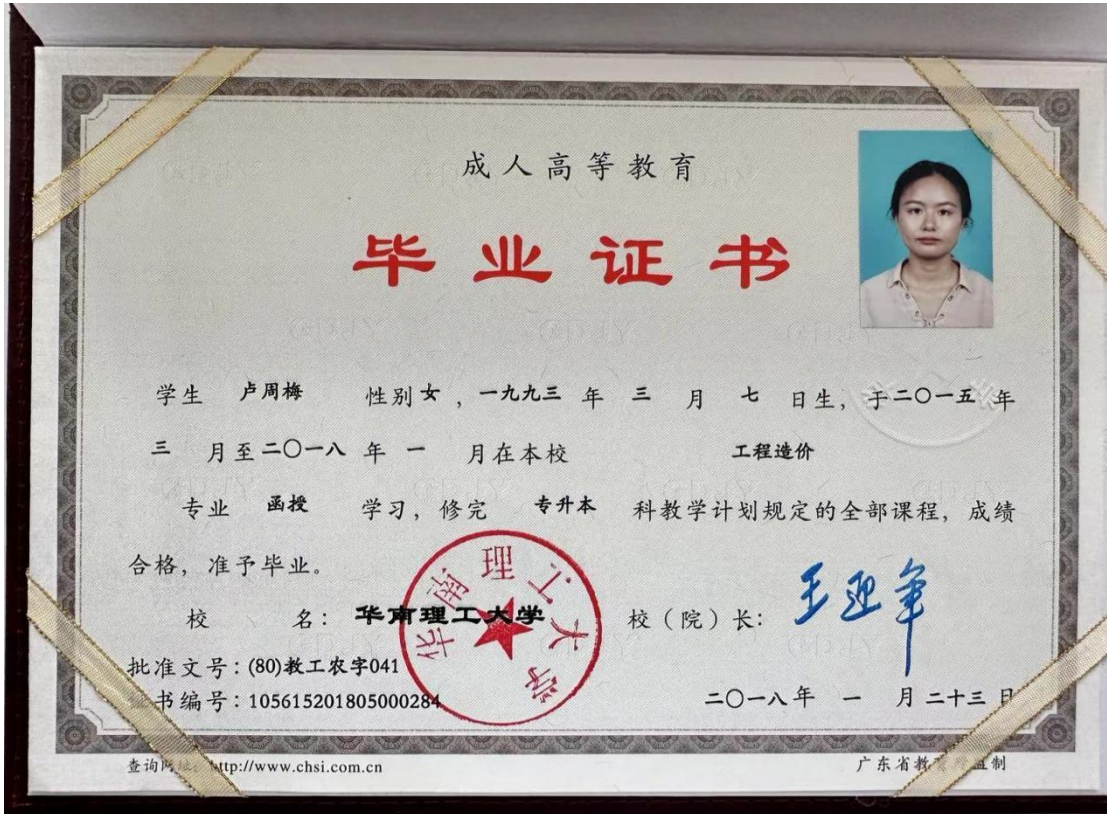 成人高等教育
毕业证书
学生 卢周梅 性别 女 ，一九九三 年 三 月 七 日生，于 二〇一五 年
三 月至 二〇一八 年 一 月在本校 工程造价
专业 函授 学习，修完 专升本 科教学计划规定的全部课程，成绩
合格，准予毕业。
校 名：华南理工大学 校（院）长：王迎军
华南理工大学
批准文号：(80)教工农字041
书编号：105615201805000284
二〇一八 年 一 月 二十三 日
查询网址：http://www.chsi.com.cn
广东省教育厅监制